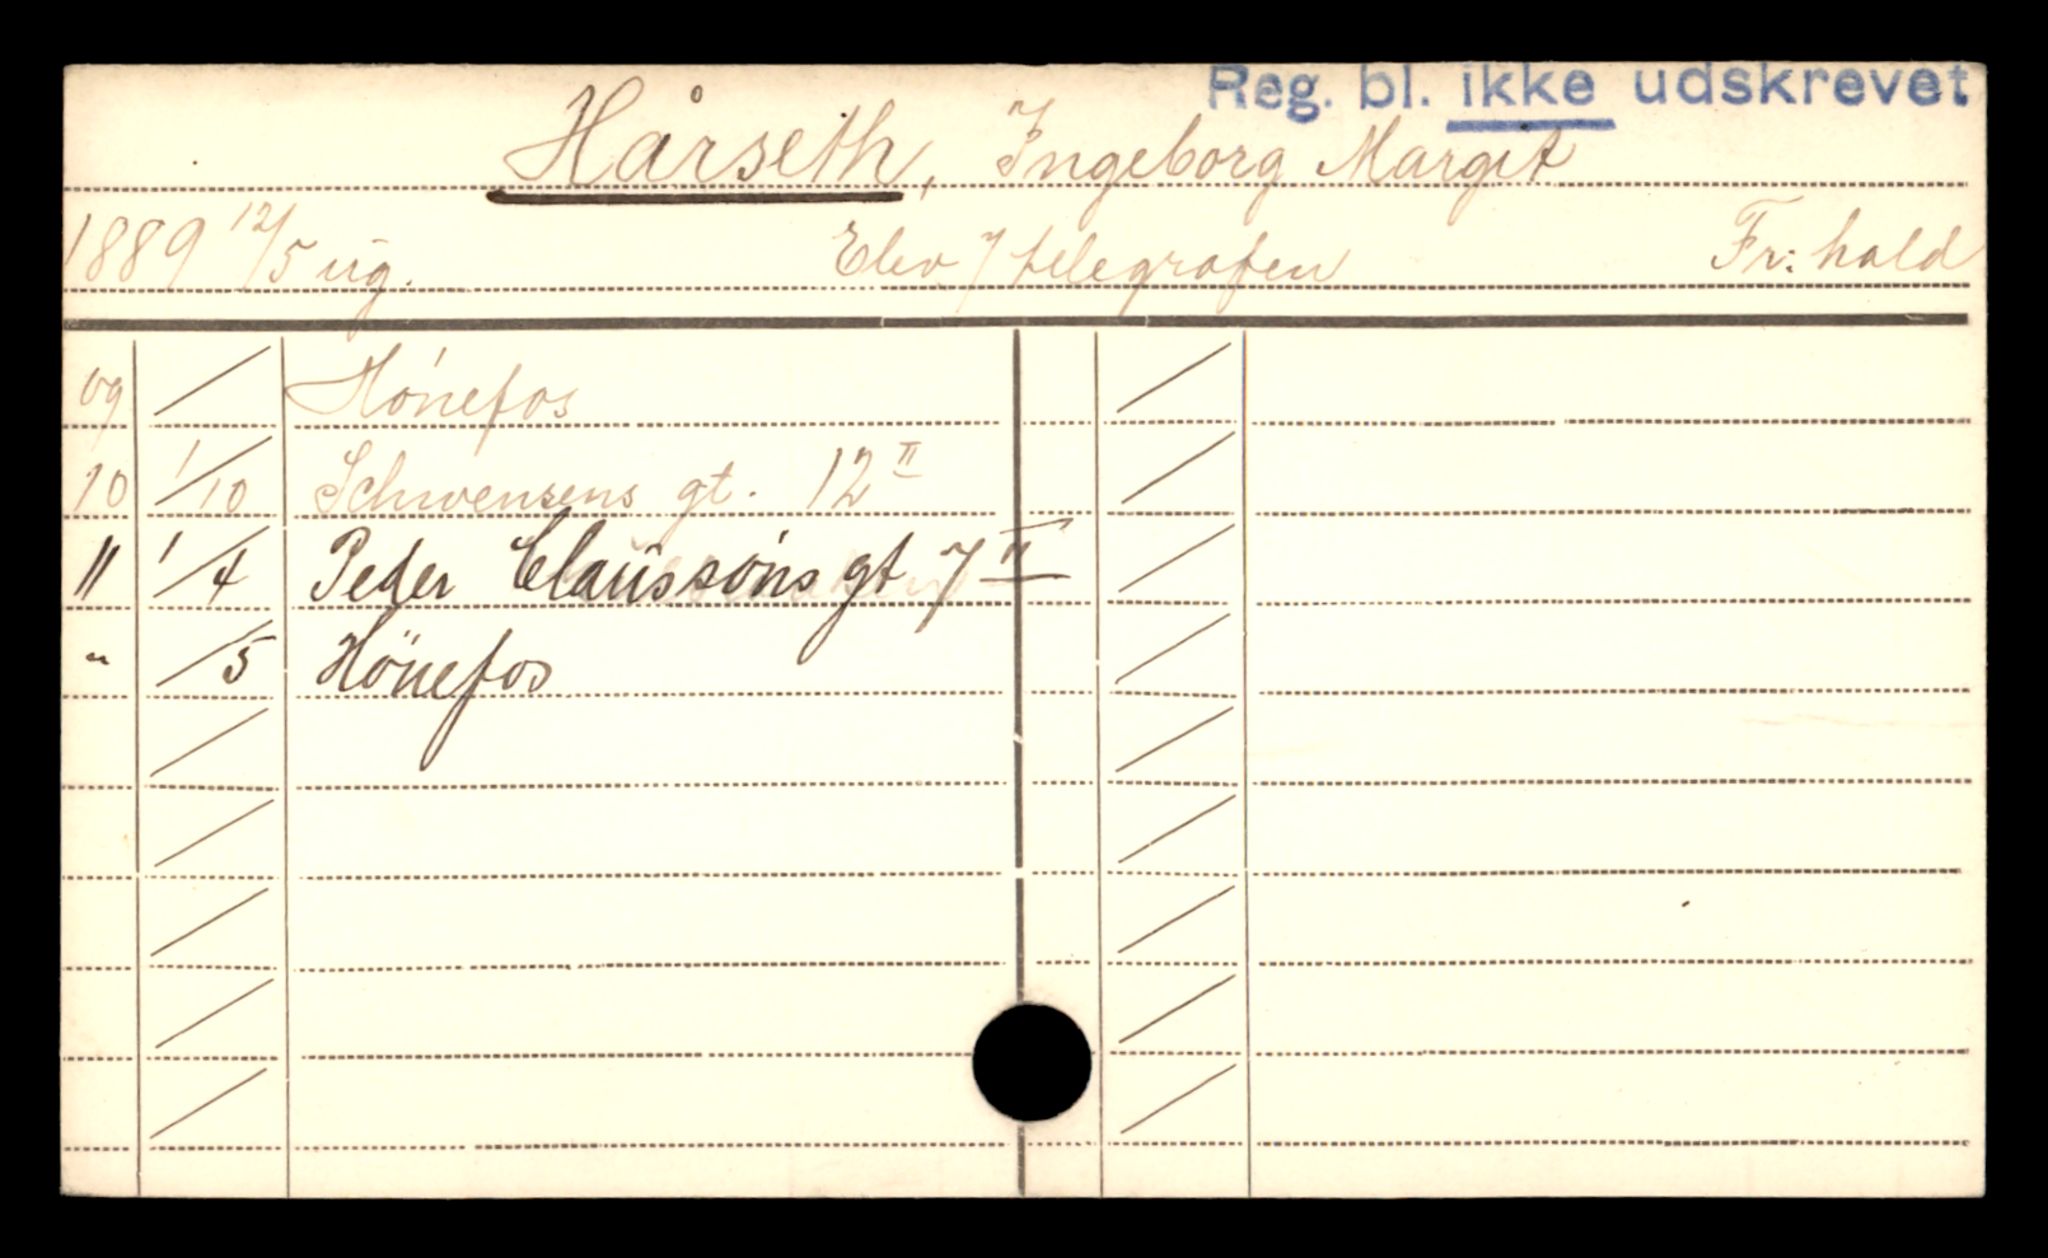 Reg. bl. ikke udskrevet
Hårseth, Ingeborg Margit
1889 12/5 ug. Elev i telegrafen Fr: hald
09 / Hönefos
10 1/10 Schwensens gt. 12 II
11 1/4 Peder Claussöns gt 7 II
" /5 Hönefos